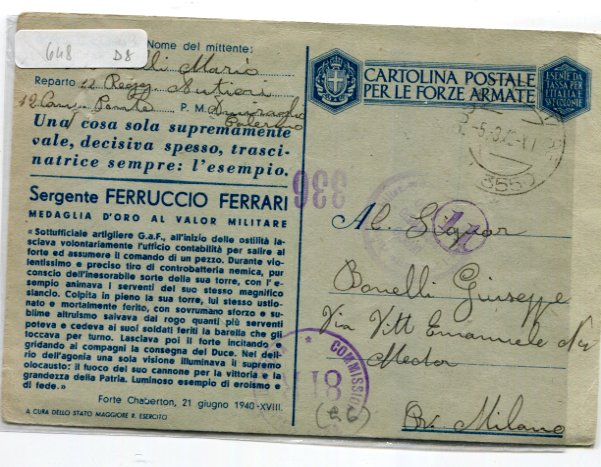 648 D8
Nome del mittente:
Mario
Reparto 22 Regg.
12 Comp. P. M.
Palermo
Una cosa sola supremamente
vale, decisiva spesso, trasci-
natrice sempre: l'esempio.
Sergente FERRUCCIO FERRARI
MEDAGLIA D'ORO AL VALOR MILITARE
« Sottufficiale artigliere G.a.F., all'inizio delle ostilità la-
sciava volontariamente l'ufficio contabilità per salire al
forte ed assumere il comando di un pezzo. Durante vio-
lentissimo e preciso tiro di controbatteria nemica, pur
conscio dell'inesorabile sorte della sua torre, con l'e-
sempio animava i serventi del suo stesso magnifico
slancio. Colpita in pieno la sua torre, lui stesso ustio-
nato e mortalmente ferito, con sovrumano sforzo e su-
blime altruismo salvava dal rogo quanti più serventi
poteva e cedeva ai suoi soldati feriti la barella che gli
toccava per turno. Lasciava poi il forte incitando e
gridando ai compagni la consegna del Duce. Nel deli-
rio dell'agonia una sola visione illuminava il supremo
olocausto: il fuoco del suo cannone per la vittoria e la
grandezza della Patria. Luminoso esempio di eroismo e
di fede. »
Forte Chaberton, 21 giugno 1940-XVIII.
A CURA DELLO STATO MAGGIORE R. ESERCITO
CARTOLINA POSTALE
PER LE FORZE ARMATE
ESENTE DA
TASSA PER
L'ITALIA
E SUE COLONIE
3550
336
Al Signor
Bonelli Giuseppe
Via Vitt Emanuele
Pr. Milano
COMMISSIO
18